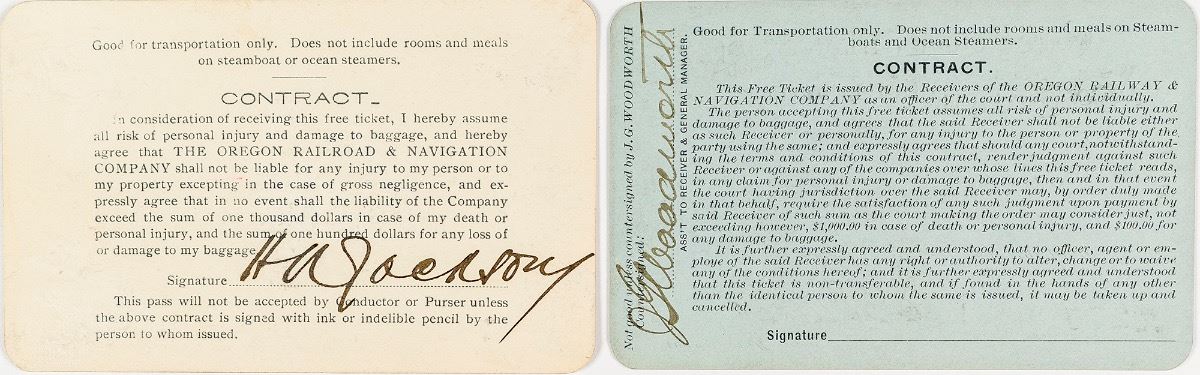 Good for transportation only. Does not include rooms and meals
on steamboat or ocean steamers.
CONTRACT_
In consideration of receiving this free ticket, I hereby assume
all risk of personal injury and damage to baggage, and hereby
agree that THE OREGON RAILROAD & NAVIGATION
COMPANY shall not be liable for any injury to my person or to
my property excepting in the case of gross negligence, and ex-
pressly agree that in no event shall the liability of the Company
exceed the sum of one thousand dollars in case of my death or
personal injury, and the sum of one hundred dollars for any loss of
or damage to my baggage
Signature H A Jackson
This pass will not be accepted by Conductor or Purser unless
the above contract is signed with ink or indelible pencil by the
person to whom issued.
Not good unless countersigned by J. G. WOODWORTH
Countersigned:
J G Woodworth
ASS'T TO RECEIVER & GENERAL MANAGER.
Good for Transportation only. Does not include rooms and meals on Steam-
boats and Ocean Steamers.
CONTRACT.
This Free Ticket is issued by the Receivers of the OREGON RAILWAY &
NAVIGATION COMPANY as an officer of the court and not individually.
The person accepting this free ticket assumes all risk of personal injury and
damage to baggage, and agrees that the said Receiver shall not be liable either
as such Receiver or personally, for any injury to the person or property of the
party using the same; and expressly agrees that should any court, notwithstand-
ing the terms and conditions of this contract, render judgment against such
Receiver or against any of the companies over whose lines this free ticket reads,
in any claim for personal injury or damage to baggage, then and in that event
the court having jurisdiction over the said Receiver may, by order duly made
in that behalf, require the satisfaction of any such judgment upon payment by
said Receiver of such sum as the court making the order may consider just, not
exceeding however, $1,000.00 in case of death or personal injury, and $100.00 for
any damage to baggage.
It is further expressly agreed and understood, that no officer, agent or em-
ploye of the said Receiver has any right or authority to alter, change or to waive
any of the conditions hereof; and it is further expressly agreed and understood
that this ticket is non-transferable, and if found in the hands of any other
than the identical person to whom the same is issued, it may be taken up and
cancelled.
Signature